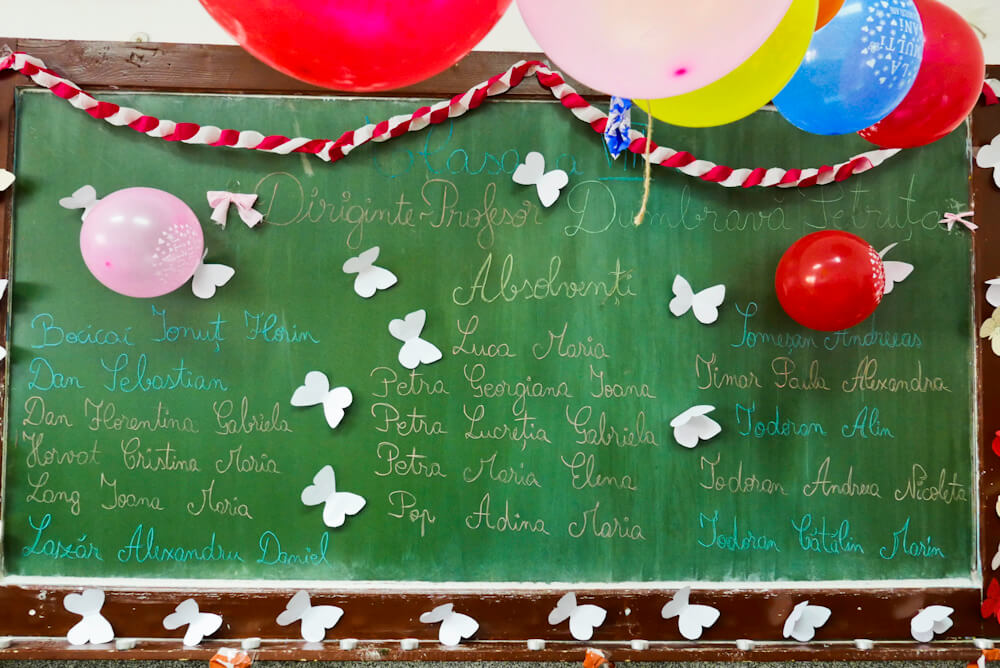 Clasa a
Diriginte-Profesor Dumbravă Petruța
Absolvenți
Bocicai Ionuț Horin
Dan Sebastian
Dan Florentina Gabriela
Horvat Cristina Maria
Lang Ioana Maria
Laszár Alexandru Daniel
Luca Maria
Petra Georgiana Ioana
Petra Lucreția Gabriela
Petra Maria Elena
Pop Adina Maria
Tomeșan Andreeas
Timar Paula Alexandra
Todoran Alin
Todoran Andreea Nicoleta
Todoran Cătălin Marin
LA
MULTI
ANI